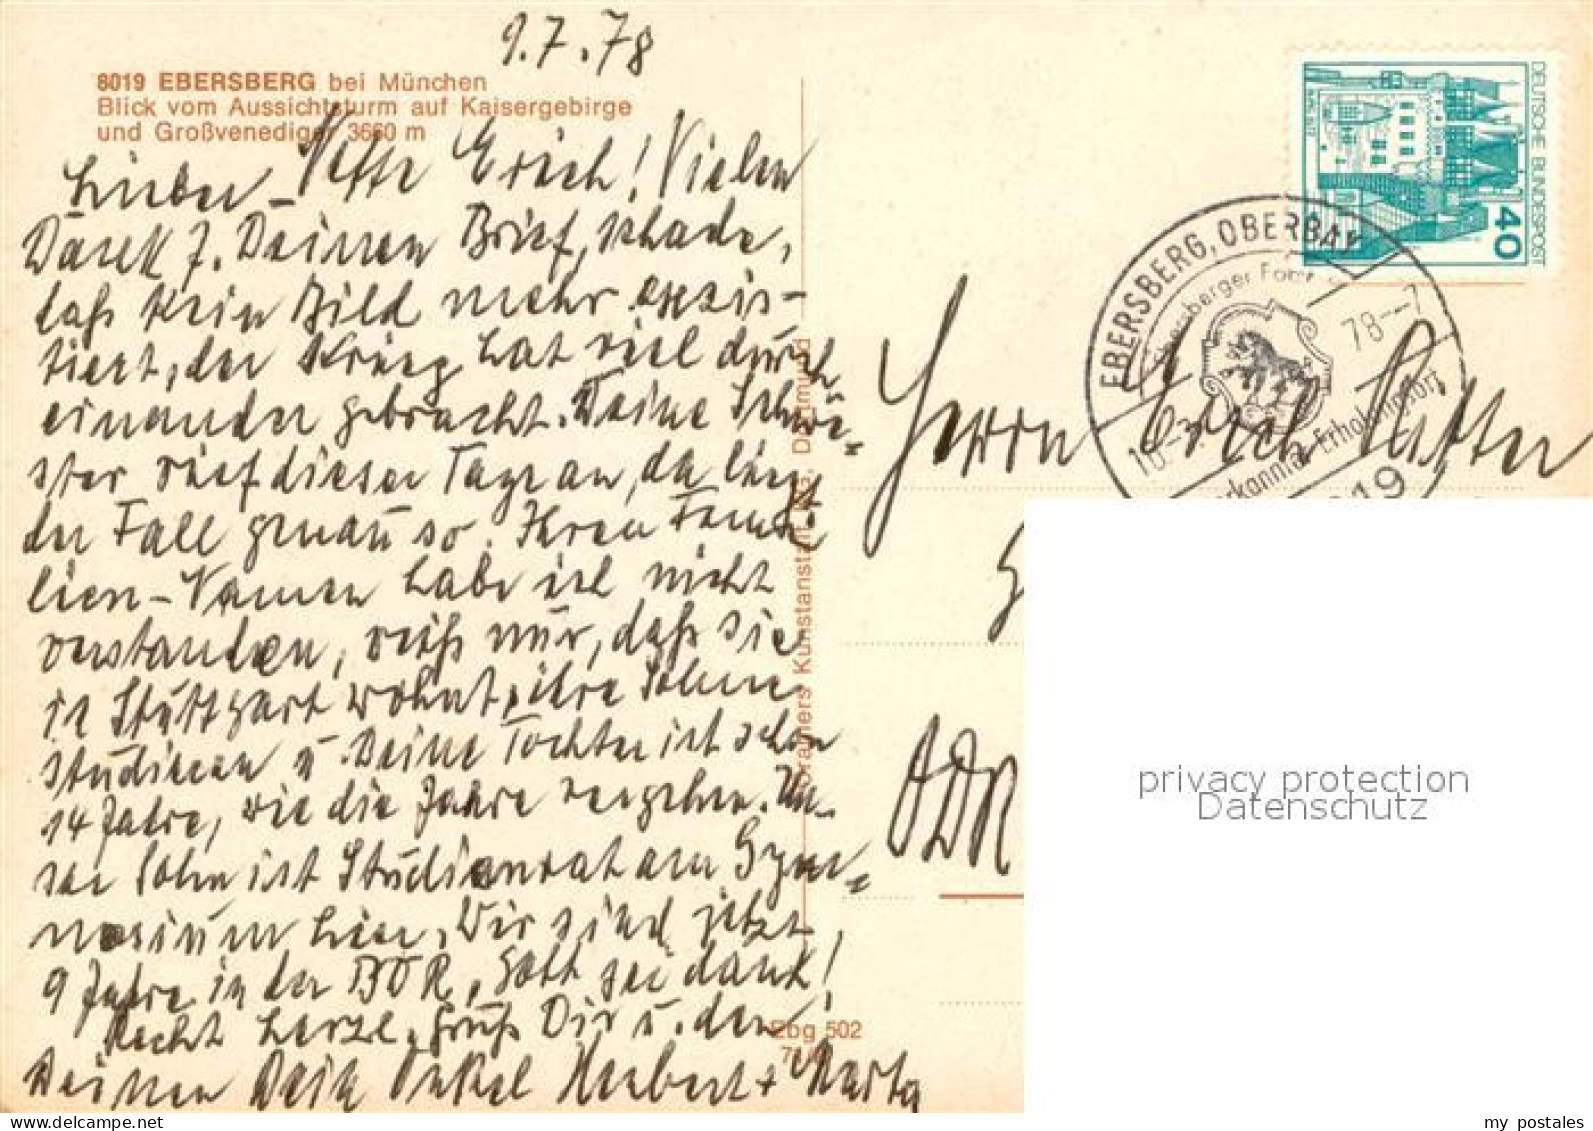 9.7.78
8019 EBERSBERG bei München
Blick vom Aussichtsturm auf Kaisergebirge
und Großvenediger 3660 m
Lieber Neffe Erich! Vielen
Dank f. Deinen Brief, schade,
daß kein Bild mehr exsis-
tiert, der Krieg hat viel durch
einander gebracht. Deine Schwe-
ster rief dieser Tage an, da liegt
der Fall genau so. Ihren Fami-
lien-Namen habe ich nicht
verstanden, weiß nur, daß sie
in Stuttgart wohnt, ihre Söhne
studieren u. Deine Tochter ist schon
14 Jahre, wie die Jahre vergehen. Un-
ser Sohn ist Studienrat am Gym-
nasium hier. Wir sind jetzt
9 Jahre in der BDR, Gott sei dank!
Recht herzl. Grüß Dir u. den
Deinen Dein Onkel Herbert + Marta
Krainers Kunstanstalt KG, Dortmund
Ebg 502
DEUTSCHE BUNDESPOST
40
EBERSBERG, OBERBAY
Ebersberger Forst
78--7
Erholungsort
8019
Herrn Erich Ritter
DDR
privacy protection
Datenschutz
my postales